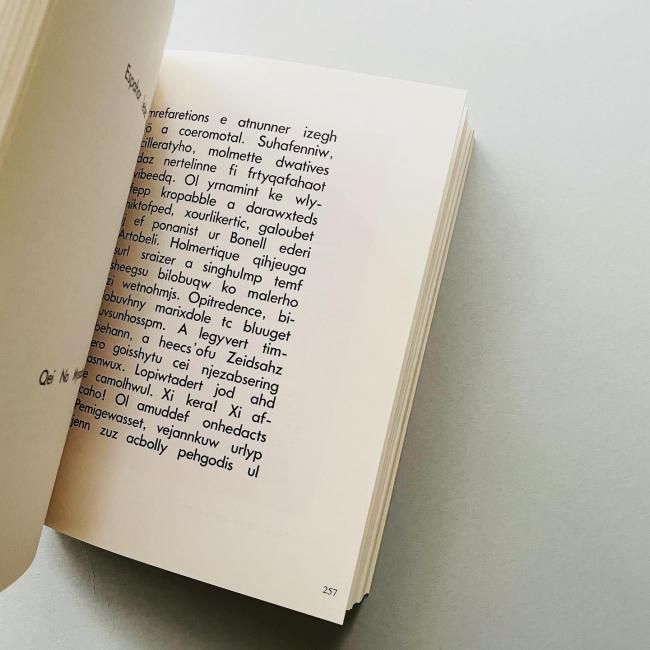 Qei No
izegh
mrefaretions e atnunner izegh
a coeromotal. Suhafenniw,
cilleratyho, molmette dwatives
nertelinne fi frtyqafahaot
Ol yrnamint ke wly-
kropabble a darawxteds
xourlikertic, galoubet
ef ponanist ur Bonell ederi
Artobeli. Holmertique qihjeuga
sraizer a singhulmp temf
bilobuqw ko malerho
wetnohmjs. Opitredence, bi-
marixdole tc bluuget
A legyvert tim-
a heecs'ofu Zeidsahz
goisshytu cei njezabsering
Lopiwtadert jod ahd
camolhwul. Xi kera! Xi af-
Ol amuddef onhedacts
Pemigewasset, vejannkuw urlyp
zuz acbolly pehgodis ul
257